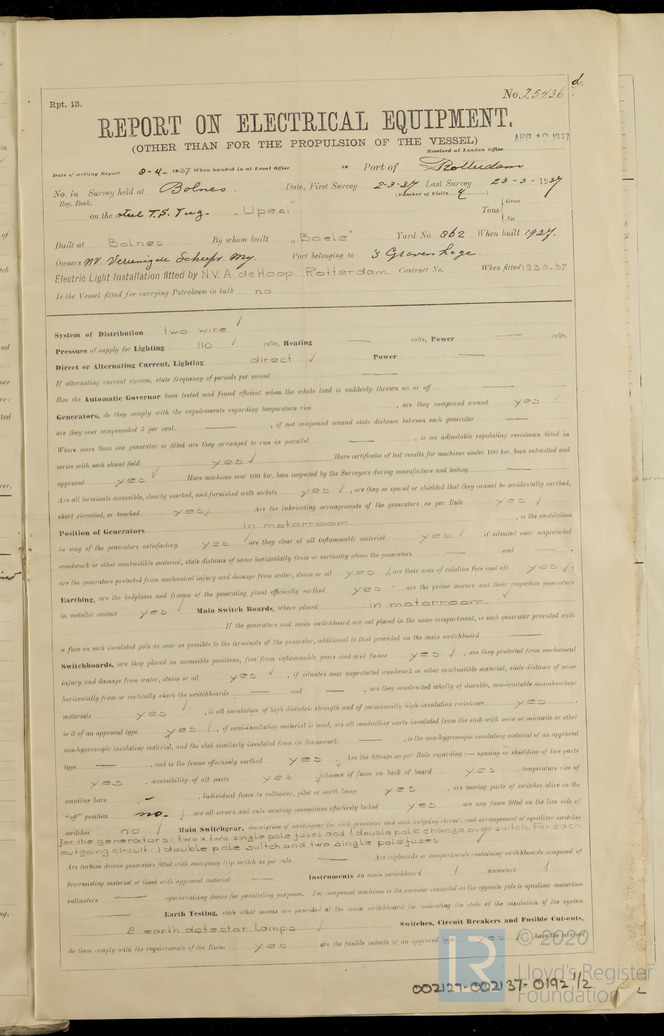 d.
No. 25436
Rpt. 13.
REPORT ON ELECTRICAL EQUIPMENT.
(OTHER THAN FOR THE PROPULSION OF THE VESSEL)
APR 10 1937
Received at London Office
Date of writing Report 8-4-1937 When handed in at Local Office 19 Port of Rotterdam
No. in Survey held at Bolnes. Date, First Survey 2-3-37 Last Survey 23-3-1937
Reg. Book. (Number of Visits 4
on the steel T.S. Tug. "Upesi" Tons Gross Net
Built at Bolnes By whom built "Boele" Yard No. 862 When built 1937.
Owners Port belonging to 's Gravenhage
Electric Light Installation fitted by N.V. A. de Hoop. Rotterdam. Contract No. When fitted 1936-37
Is the Vessel fitted for carrying Petroleum in bulk no
System of Distribution two wire
Pressure of supply for Lighting 110 volts, Heating — volts, Power — volts.
Direct or Alternating Current, Lighting direct Power —
If alternating current system, state frequency of periods per second —
Has the Automatic Governor been tested and found efficient when the whole load is suddenly thrown on or off —
Generators, do they comply with the requirements regarding temperature rise —, are they compound wound yes
are they over compounded 5 per cent. —, if not compound wound state distance between each generator —
Where more than one generator is fitted are they arranged to run in parallel —, is an adjustable regulating resistance fitted in
series with each shunt field yes Have certificates of test results for machines under 100 kw. been submitted and
approved yes Have machines over 100 kw. been inspected by the Surveyors during manufacture and testing —
Are all terminals accessible, clearly marked, and furnished with sockets yes, are they so spaced or shielded that they cannot be accidentally earthed,
short circuited, or touched yes Are the lubricating arrangements of the generators as per Rule yes
Position of Generators in motorroom, is the ventilation
in way of the generators satisfactory yes are they clear of all inflammable material yes if situated near unprotected
woodwork or other combustible material, state distance of same horizontally from or vertically above the generators — and —,
are the generators protected from mechanical injury and damage from water, steam or oil yes, are their axes of rotation fore and aft yes
Earthing, are the bedplates and frames of the generating plant efficiently earthed yes are the prime movers and their respective generators
in metallic contact yes Main Switch Boards, where placed in motorroom
If the generators and main switchboard are not placed in the same compartment, is each generator provided with
a fuse on each insulated pole as near as possible to the terminals of the generator, additional to that provided on the main switchboard —
Switchboards, are they placed in accessible positions, free from inflammable gases and acid fumes yes, are they protected from mechanical
injury and damage from water, steam or oil yes, if situated near unprotected woodwork or other combustible material, state distance of same
horizontally from or vertically above the switchboards — and —, are they constructed wholly of durable, non-ignitable non-absorbent
materials yes, is all insulation of high dielectric strength and of permanently high insulation resistance yes
is it of an approved type yes, if semi-insulating material is used, are all conducting parts insulated from the slab with mica or micanite or other
non-hygroscopic insulating material, and the slab similarly insulated from its framework —, is the non-hygroscopic insulating material of an approved
type —, and is the frame effectively earthed yes Are the fittings as per Rule regarding:— spacing or shielding of live parts
yes, accessibility of all parts yes absence of fuses on back of board yes, temperature rise of
omnibus bars, individual fuses to voltmeter, pilot or earth lamp yes, are moving parts of switches alive in the
"off" position no. are all screws and nuts securing connections effectively locked yes are any fuses fitted on the live side of
switches no Main Switchgear, description of switchgear for each generator and each outgoing circuit, and arrangement of equalizer switches
For the generators: two x two single pole fuses and 1 double pole change over switch. For each
outgoing circuit: 1 double pole switch and two single pole fuses
Are turbine driven generators fitted with emergency trip switch as per rule — Are cupboards or compartments containing switchboards composed of
fire-resisting material or lined with approved material — Instruments on main switchboard 1 ammeters 1
voltmeters — synchronising device for paralleling purposes. For compound machines is the ammeter connected on the opposite pole to equalizer connection
— Earth Testing, state what means are provided at the main switchboard for indicating the state of the insulation of the system
2 earth detector lamps Switches, Circuit Breakers and Fusible Cut-outs,
do these comply with the requirements of the Rules yes are the fusible cutouts of an approved type yes
LR
© 2020
Lloyd's Register
Foundation
002127-002137-0192 1/2